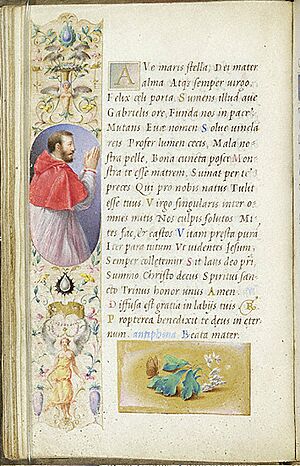 AVe maris stella, Dei mater
alma Atq; semper virgo,
Felix celi porta. Sumens illud aue
Gabrielis ore, Funda nos in pace,
Mutans Euæ nomen Solue vincla
reis Profer lumen cecis, Mala no
stra pelle, Bona cuncta posce Mon
stra te esse matrem, Sumat per te
preces Qui pro nobis natus Tulit
esse tuus Virgo singularis inter o
mnes mitis Nos culpis solutos Mi
tes fac, & castos Vitam presta purā
Iter para tutum Vt videntes Jesum,
Semper colletemur Sit laus deo pri
Summo Christo decus Spiritus san
cto Trinus honor unus Amen.
Diffusa est gratia in labijs tuis R
Propterea benedixit te deus in eter
num. antiphona Beata mater.